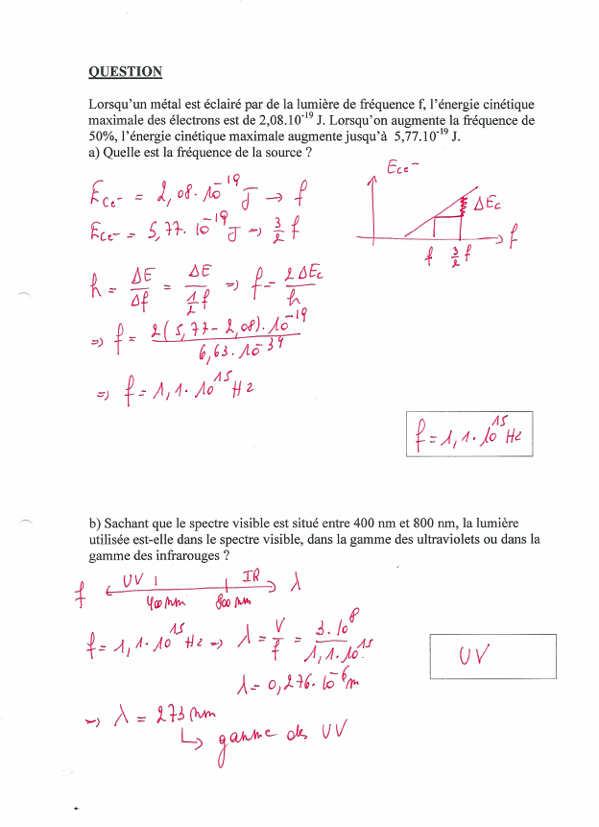 QUESTION
Lorsqu'un métal est éclairé par de la lumière de fréquence f, l'énergie cinétique
maximale des électrons est de 2,08.10⁻¹⁹ J. Lorsqu'on augmente la fréquence de
50%, l'énergie cinétique maximale augmente jusqu'à 5,77.10⁻¹⁹ J.
a) Quelle est la fréquence de la source ?
E_Ce⁻ = 2,08.10⁻¹⁹ J → f
E_Ce⁻ = 5,77.10⁻¹⁹ J → 3/2 f
E_Ce⁻
ΔEc
f
f 3/2 f
h = ΔE/Δf = ΔE/(1/2 f) => f = 2ΔEc/h
=> f = 2(5,77-2,08).10⁻¹⁹/6,63.10⁻³⁴
=> f = 1,1.10¹⁵ Hz
f = 1,1.10¹⁵ Hz
b) Sachant que le spectre visible est situé entre 400 nm et 800 nm, la lumière
utilisée est-elle dans le spectre visible, dans la gamme des ultraviolets ou dans la
gamme des infrarouges ?
f UV IR λ
400 nm 800 nm
f = 1,1.10¹⁵ Hz => λ = V/f = 3.10⁸/1,1.10¹⁵
UV
λ = 0,276.10⁻⁶ m
=> λ = 273 nm
↳ gamme des UV